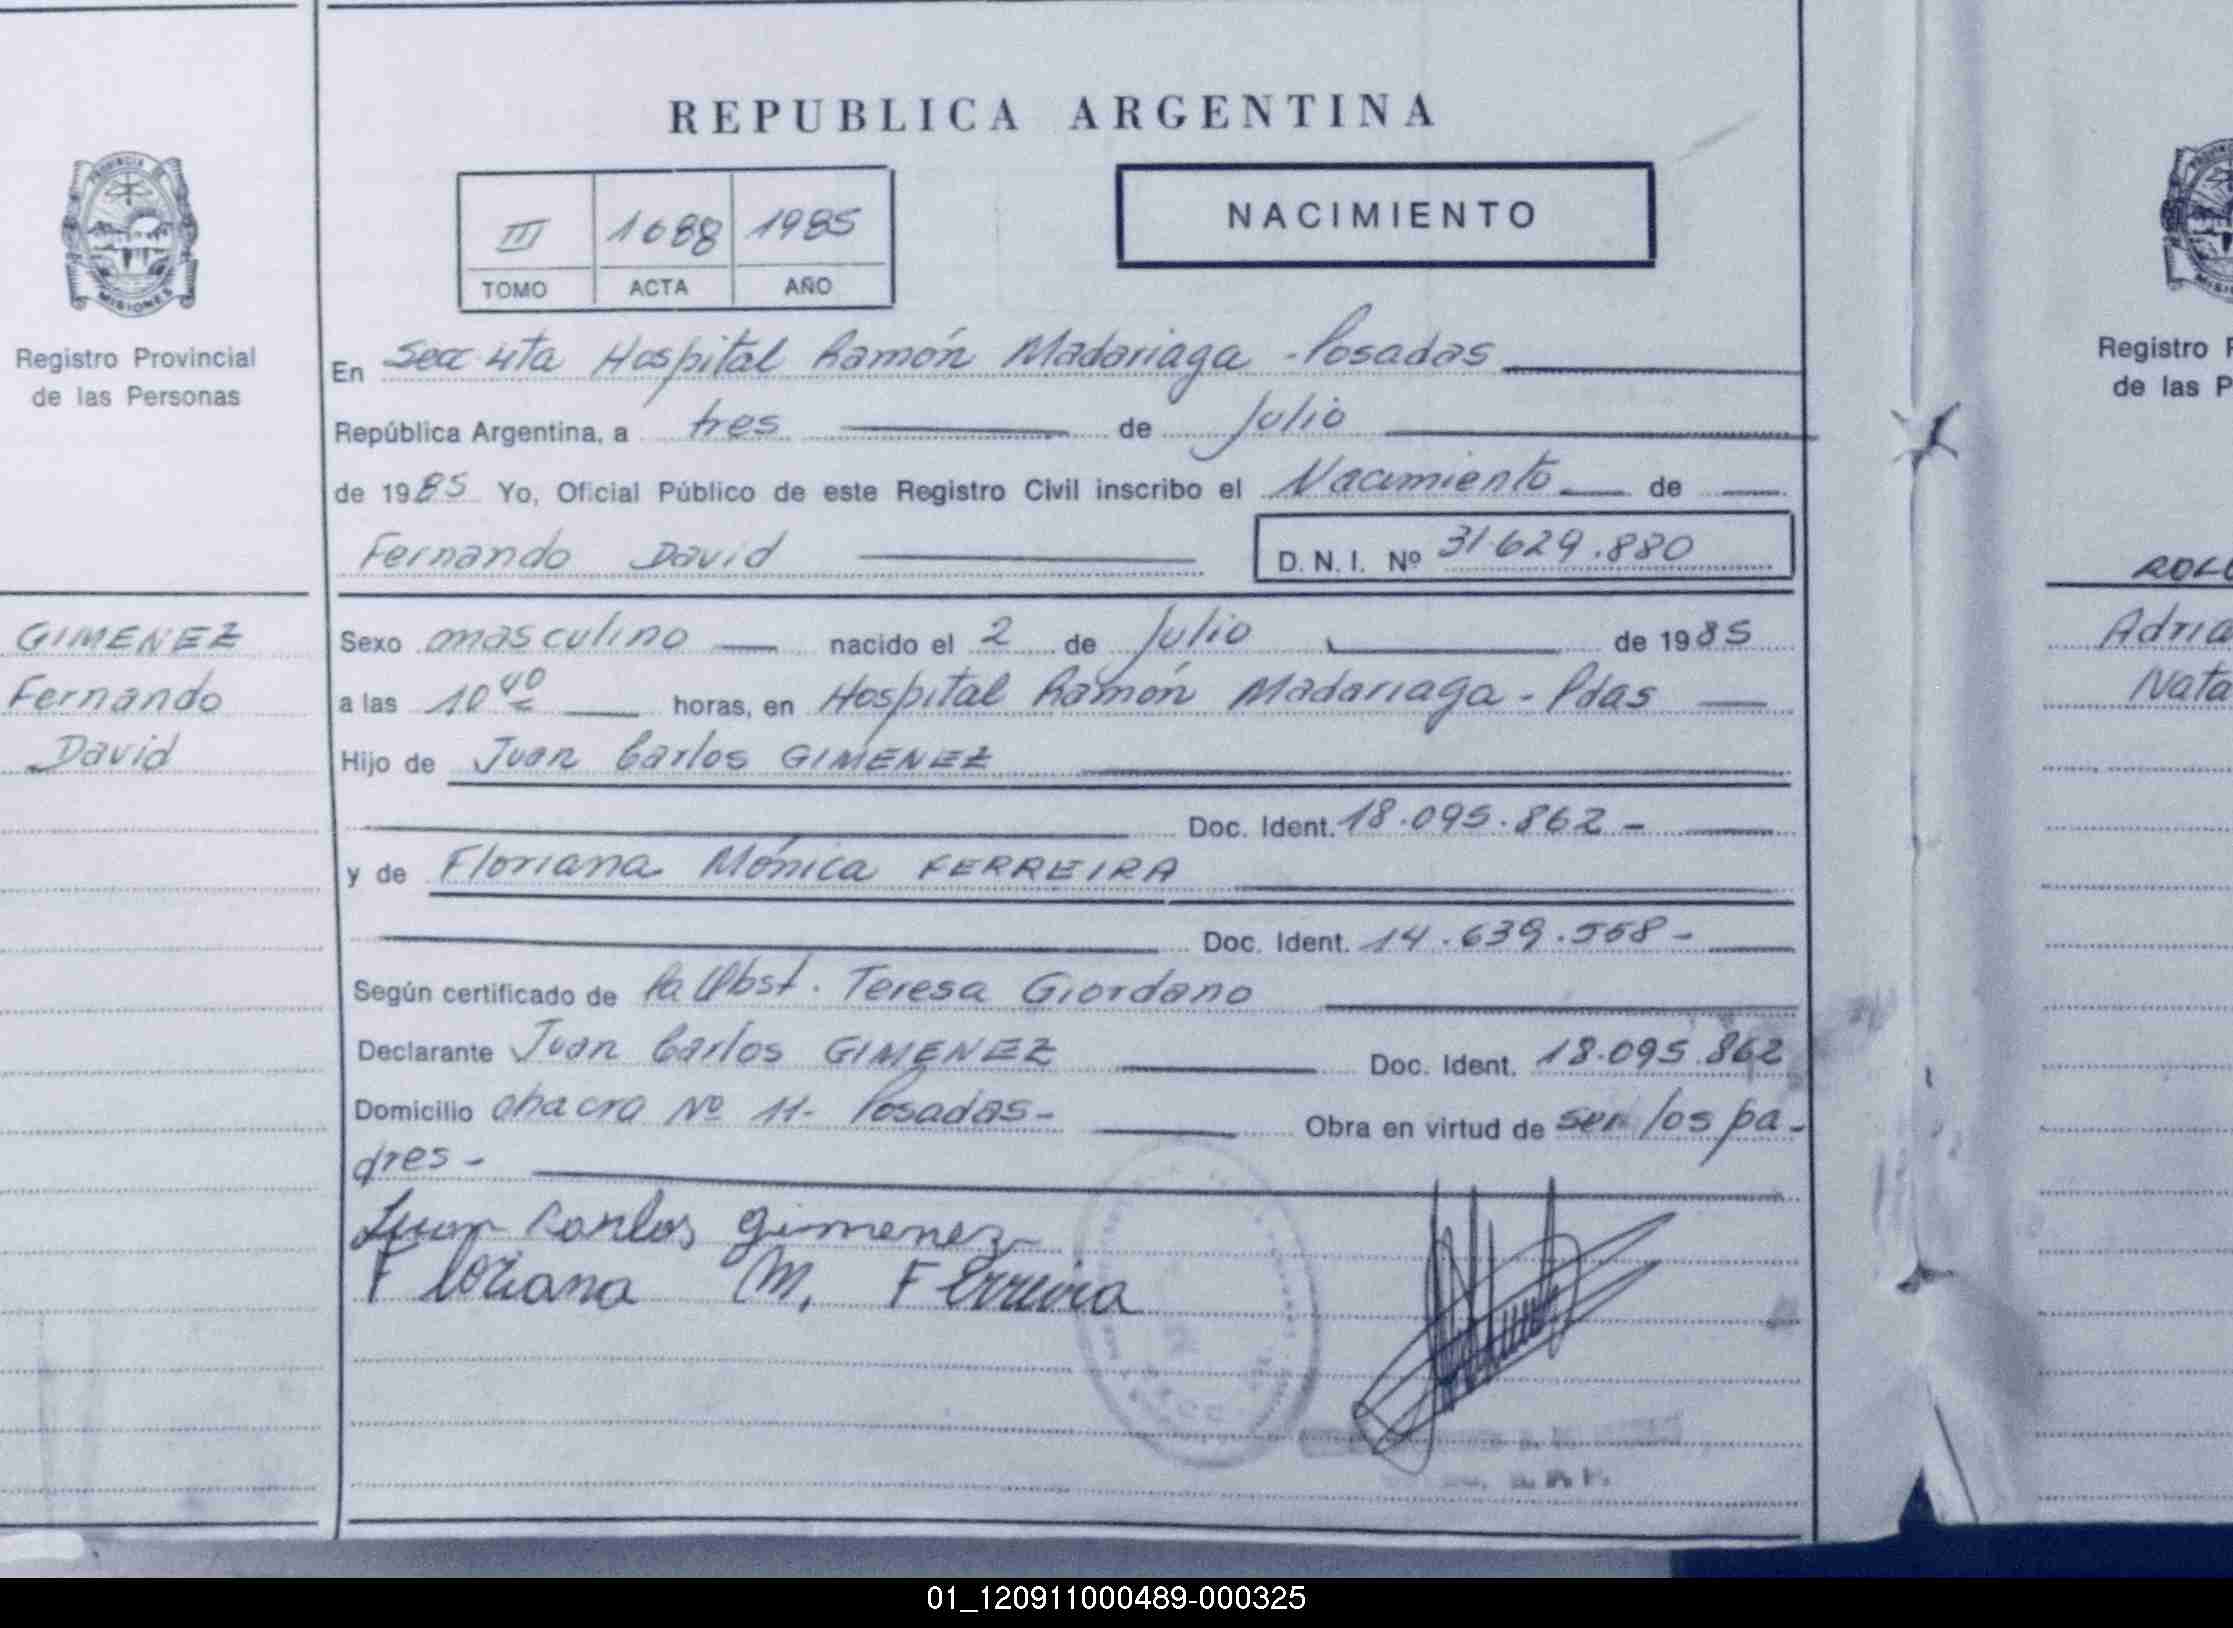 REPUBLICA ARGENTINA
PROVINCIA DE
MISIONES
Registro Provincial
de las Personas
III 1688 1985
TOMO ACTA AÑO
NACIMIENTO
En Secc 4ta Hospital Ramón Madariaga - Posadas
República Argentina, a tres de Julio
de 1985 Yo, Oficial Público de este Registro Civil inscribo el Nacimiento de
Fernando David D. N. I. Nº 31.629.880
GIMENEZ
Fernando
David
Sexo masculino nacido el 2 de Julio de 1985
a las 10 40 horas, en Hospital Ramón Madariaga - Pdas
Hijo de Juan Carlos GIMENEZ
Doc. Ident. 18.095.862 -
y de Floriana Mónica FERREIRA
Doc. Ident. 14.639.558 -
Según certificado de la Obst. Teresa Giordano
Declarante Juan Carlos GIMENEZ Doc. Ident. 18.095.862
Domicilio chacra Nº 11 - Posadas - Obra en virtud de ser los pa-
dres -
Juan Carlos Gimenez
Floriana M. Ferreira
Registro
de las
Adria
Nata
01_120911000489-000325